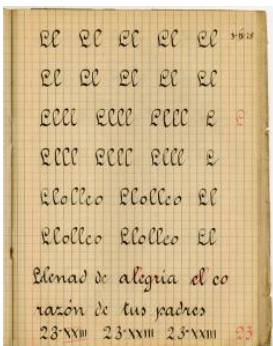 Ll Ll Ll Ll Ll
Ll Ll Ll Ll Ll
Llll Llll Llll L L
Llll Llll Llll L
Llolleo Llolleo Ll
Llolleo Llolleo Ll
Llenad de alegria el co
razón de tus padres
23-XXIII 23-XXIII 23-XXIII 23